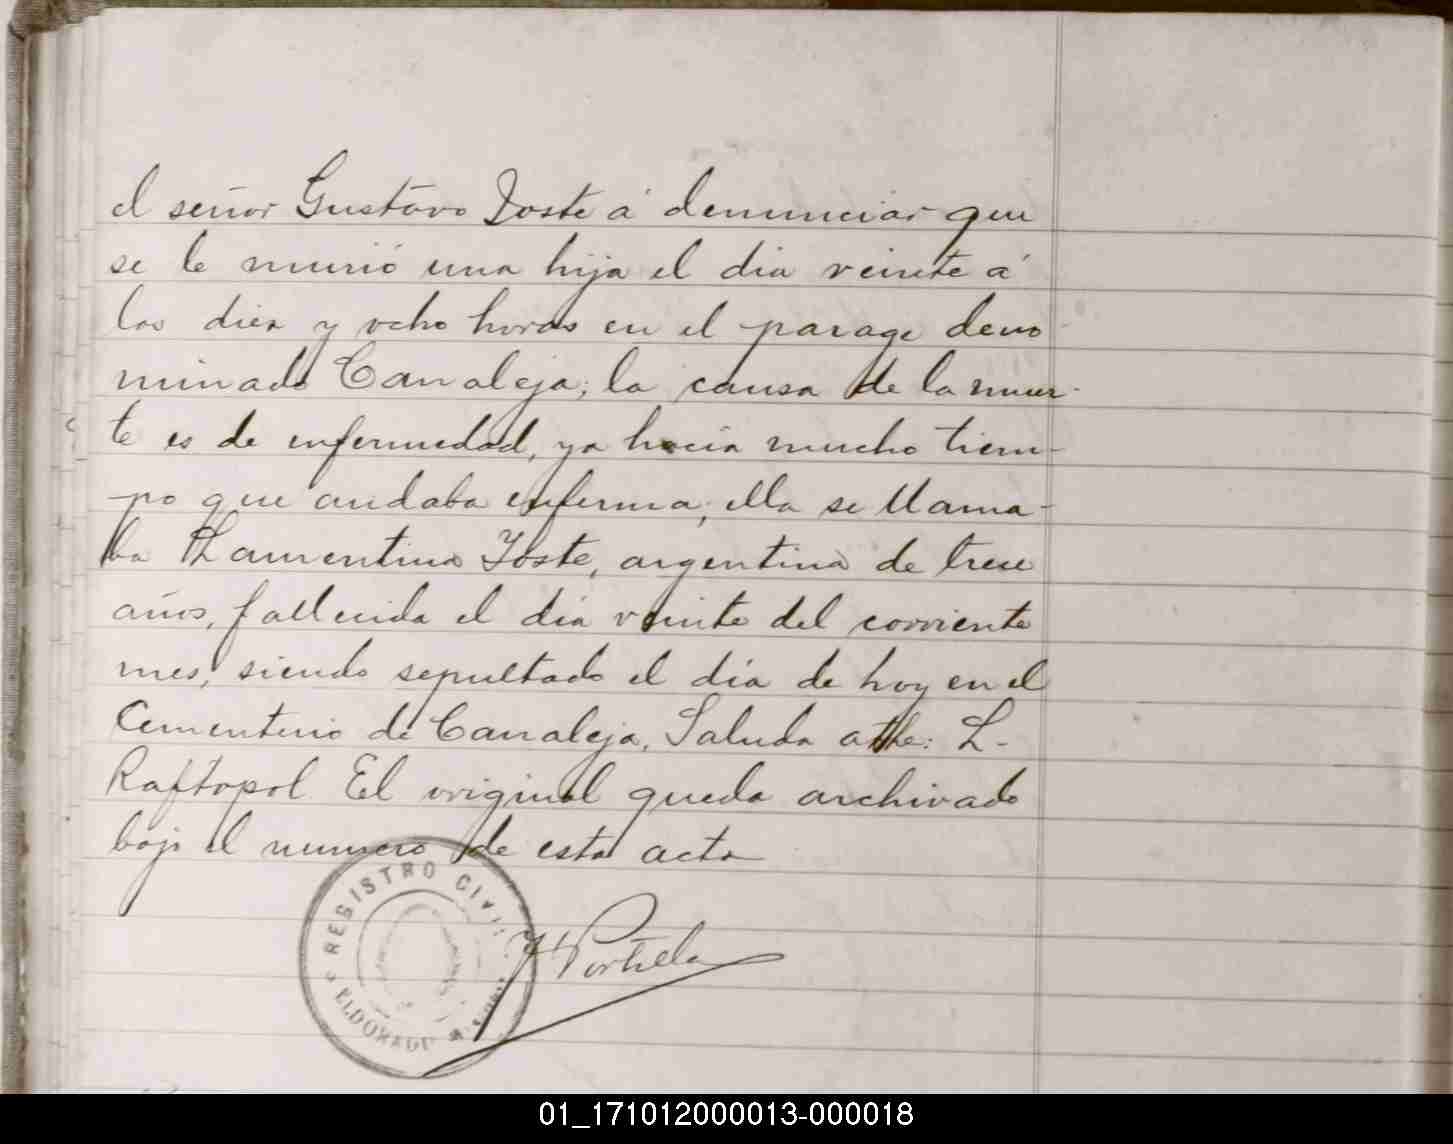 el señor Gustavo Joste á denunciar que
se le murió una hija el dia veinte á
las diez y ocho horas en el parage deno
minado Canaleja; la causa de la muer-
te es de enfermedad, ya hacía mucho tiem-
po que andaba enferma; ella se llama-
ba Lamentina Joste, argentina de trece
años, fallecida el dia veinte del corriente
mes, siendo sepultado el día de hoy en el
Cementerio de Canaleja. Saluda atte: L.
Raftopol. El original queda archivado
bajo el numero de esta acta
REGISTRO CIVIL
ELDORADO
Portela
01_171012000013-000018